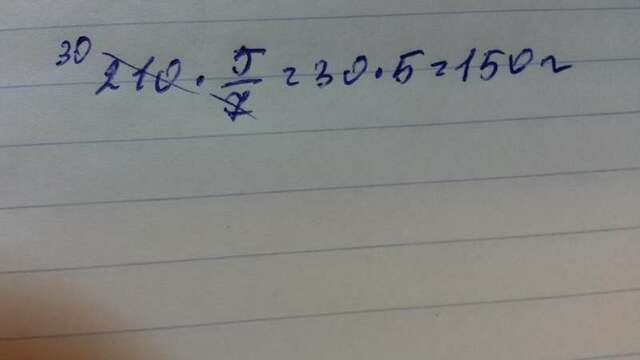 30
210 · 5/7 = 30 · 5 = 150 г